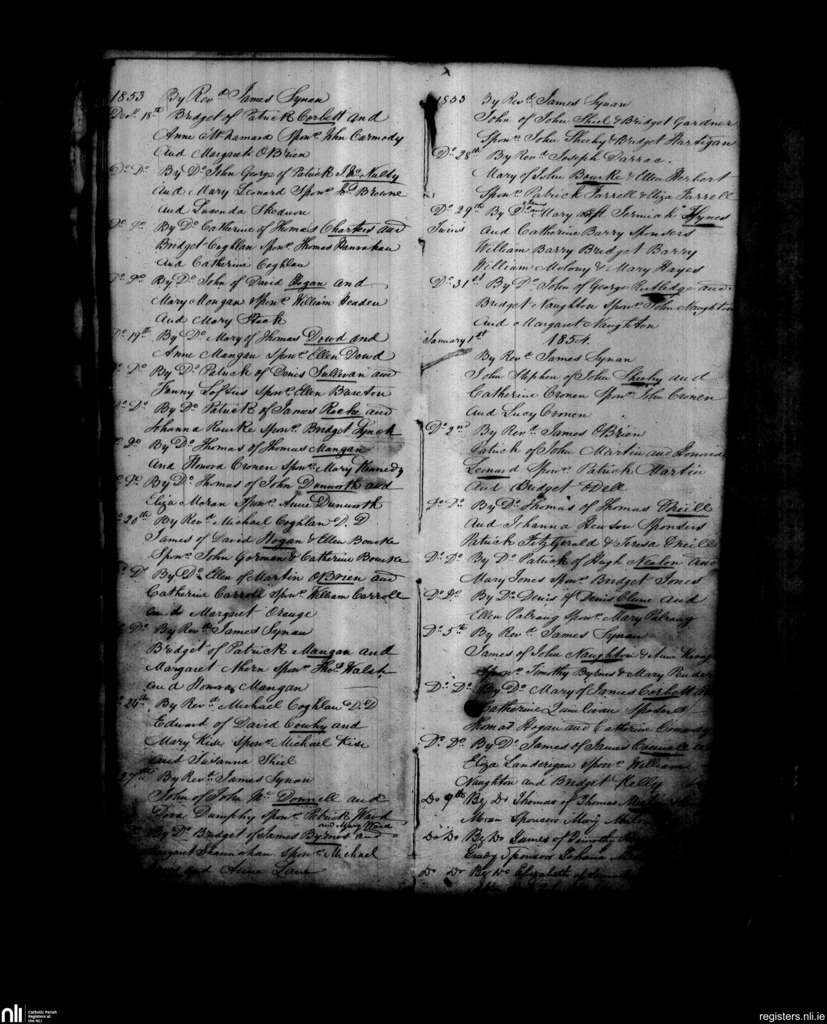 1853 By Revd. James Synan
Decr. 18th Bridget of Patrick Corbett and
Anne McNamara Sponr. John Carmody
And Margaret OBrien
Do. Do. By Do. John George of Patrick McNulty
And Mary Leonard Sponr. Browne
And
Do. Do. By Do. Catherine of Thomas Charters and
Bridget Coghlan Sponr. Thomas Hanrahan
And Catherine Coghlan
Do. Do. By Do. John of David Hogan and
Mary Mongan Sponr. William Headen
And Mary Hack
Do. 19th By Do. Mary of Thomas Dowd and
Anne Mangan Sponr. Ellen Dowd
Do. Do. By Do. Patrick of Denis Sullivan and
Fanny Loftus Sponr. Ellen Bareton
Do. Do. By Do. Patrick of James Roche and
Johanna Rourke Sponr. Bridget Lynch
Do. By Do. Thomas of Thomas Mangan
And Honora Cronen Sponr. Mary Kennedy
Do. By Do. Thomas of John Dunworth and
Eliza Moran Sponr. Anne Dunworth
20th By Revr. Michael Coghlan D.D
James of David Hogan & Ellen Bourke
Sponr. John Gorman & Catherine Bourke
Do. By Do. Ellen of Martin OBrien and
Catherine Carroll Sponr. William Carroll
and Margaret Orange
Do. By Revr. James Synan
Bridget of Patrick Mangan and
Margaret Ahern Sponr. Thos. Walsh
and Honora Mangan
24th By Revr. Michael Coghlan D.D
Edward of David Cowhy and
Mary Kise Sponr. Michael Kise
and Susanna Shiel
27th By Revr. James Synan
John of John Mc. Donnell and
Dora Dunphy Sponr. Patrick Ward
and Mary Ward
By Do. Bridget of James Byrnes and
Margaret Shannahan Sponr. Michael
and Anne Lane
1853 By Revd. James Synan
John of John Shiel & Bridget Gardner
Sponr. John Sheehy & Bridget Hartigan
Do. 28th By Revr. Joseph Darrac.
Mary of John Bourke & Ellen Herbert
Sponr. Patrick Farrell & Eliza Farrell
Do. 29th By Do. Mary of Jermiah Hynes
Twins And Catherine Barry Sponsors
William Barry Bridget Barry
William Molony & Mary Hayes
Do. 31st By Do. John of George Rutlidge and
Bridget Naughton Sponr. John Naughton
And Margaret Naughton
January 1st 1854.
By Revr. James Synan
John Stephen of John Sheehy and
Catherine Cronen Sponr. John Cronen
And Lucy Cronen
Do. 2nd By Revr. James OBrien
Patrick of John Martin and
Leonard Sponr. Patrick Martin
And Bridget ODell
Do. Do. By Do. Thomas of Thomas ONeill
And Johanna Hewson Sponsors
Patrick FitzGerald & Teresa ONeill
Do. Do. By Do. Patrick of Hugh Nealon and
Mary Jones Sponr. Bridget Jones
Do. Do. By Do. Denis of Denis Clune and
Ellen Patrang Sponr. Mary Patrang
Do. 5th By Revr. James Synan
James of John Naughton & Anne
Sponr. Timothy Byrnes & Mary
Do. Do. By Do. Mary of James Corbett
Catherine Quinlivan Sponsors
Thomas Hogan and Catherine Connedy
Do. Do. By Do. James of James
Eliza Landergan Sponr. William
Naughton and Bridget Kelly
Do 9th By Do Thomas of Thomas
Moran Sponsors Mary
Do Do By Do James of Timothy
Grady Sponsor Johana
Do Do By Do Elizabeth of
nli
Catholic Parish
Registers at
the NLI
registers.nli.ie